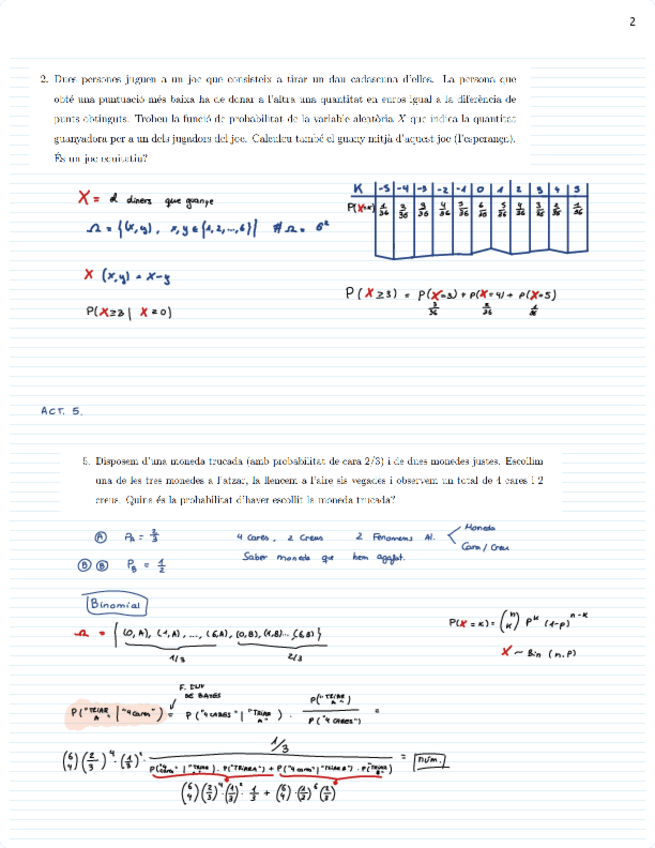 2
2. Dues persones juguen a un joc que consisteix a tirar un dau cadascuna d'elles. La persona que
obté una puntuació més baixa ha de donar a l'altra una quantitat en euros igual a la diferència de
punts obtinguts. Trobeu la funció de probabilitat de la variable aleatòria X que indica la quantitat
guanyadora per a un dels jugadors del joc. Calculeu també el guany mitjà d'aquest joc (l'esperança).
És un joc equitatiu?
X = d diners que guanye
Ω = {(x,y), x,y ∈ {1,2,...,6}} #Ω = 6²
K -5 -4 -3 -2 -1 0 1 2 3 4 5
P(X=K) 1/36 2/36 3/36 4/36 5/36 6/36 5/36 4/36 3/36 2/36 1/36
X (x,y) = x-y
P(X≥3) = P(X=3) + P(X=4) + P(X=5)
3/36 2/36 1/36
P(X≥3 | X≥0)
ACT. 5.
5. Disposem d'una moneda trucada (amb probabilitat de cara 2/3) i de dues monedes justes. Escollim
una de les tres monedes a l'atzar, la llencem a l'aire sis vegades i observem un total de 4 cares i 2
creus. Quina és la probabilitat d'haver escollit la moneda trucada?
Ⓐ P_A = 2/3 4 Cares, 2 Creus 2 Fenomens Al. Moneda
Cara / Creu
Ⓑ Ⓑ P_B = 1/2 Saber moneda que hem agafat.
Binomial
Ω = {(0,A), (1,A), ..., (6,A), (0,B), (1,B)... (6,B)}
1/3 2/3
P(X=K) = (n K) p^K (1-p)^{n-K}
X ~ Bin (n,p)
DE BAYES
P("TRIAR A" | "4 cares") = P("4 CARES" | "TRIAR A") · P("TRIAR A") / P("4 CARES") =
(6 4) (2/3)^4 · (1/3)² · 1/3 / P("4 cares" | "TRIAR A") · P("TRIAR A") + P("4 cares" | "TRIAR B") · P("TRIAR B") = núm.
(6 4) (2/3)^4 (1/3)² · 1/3 + (6 4) · (1/2)^6 (2/3)